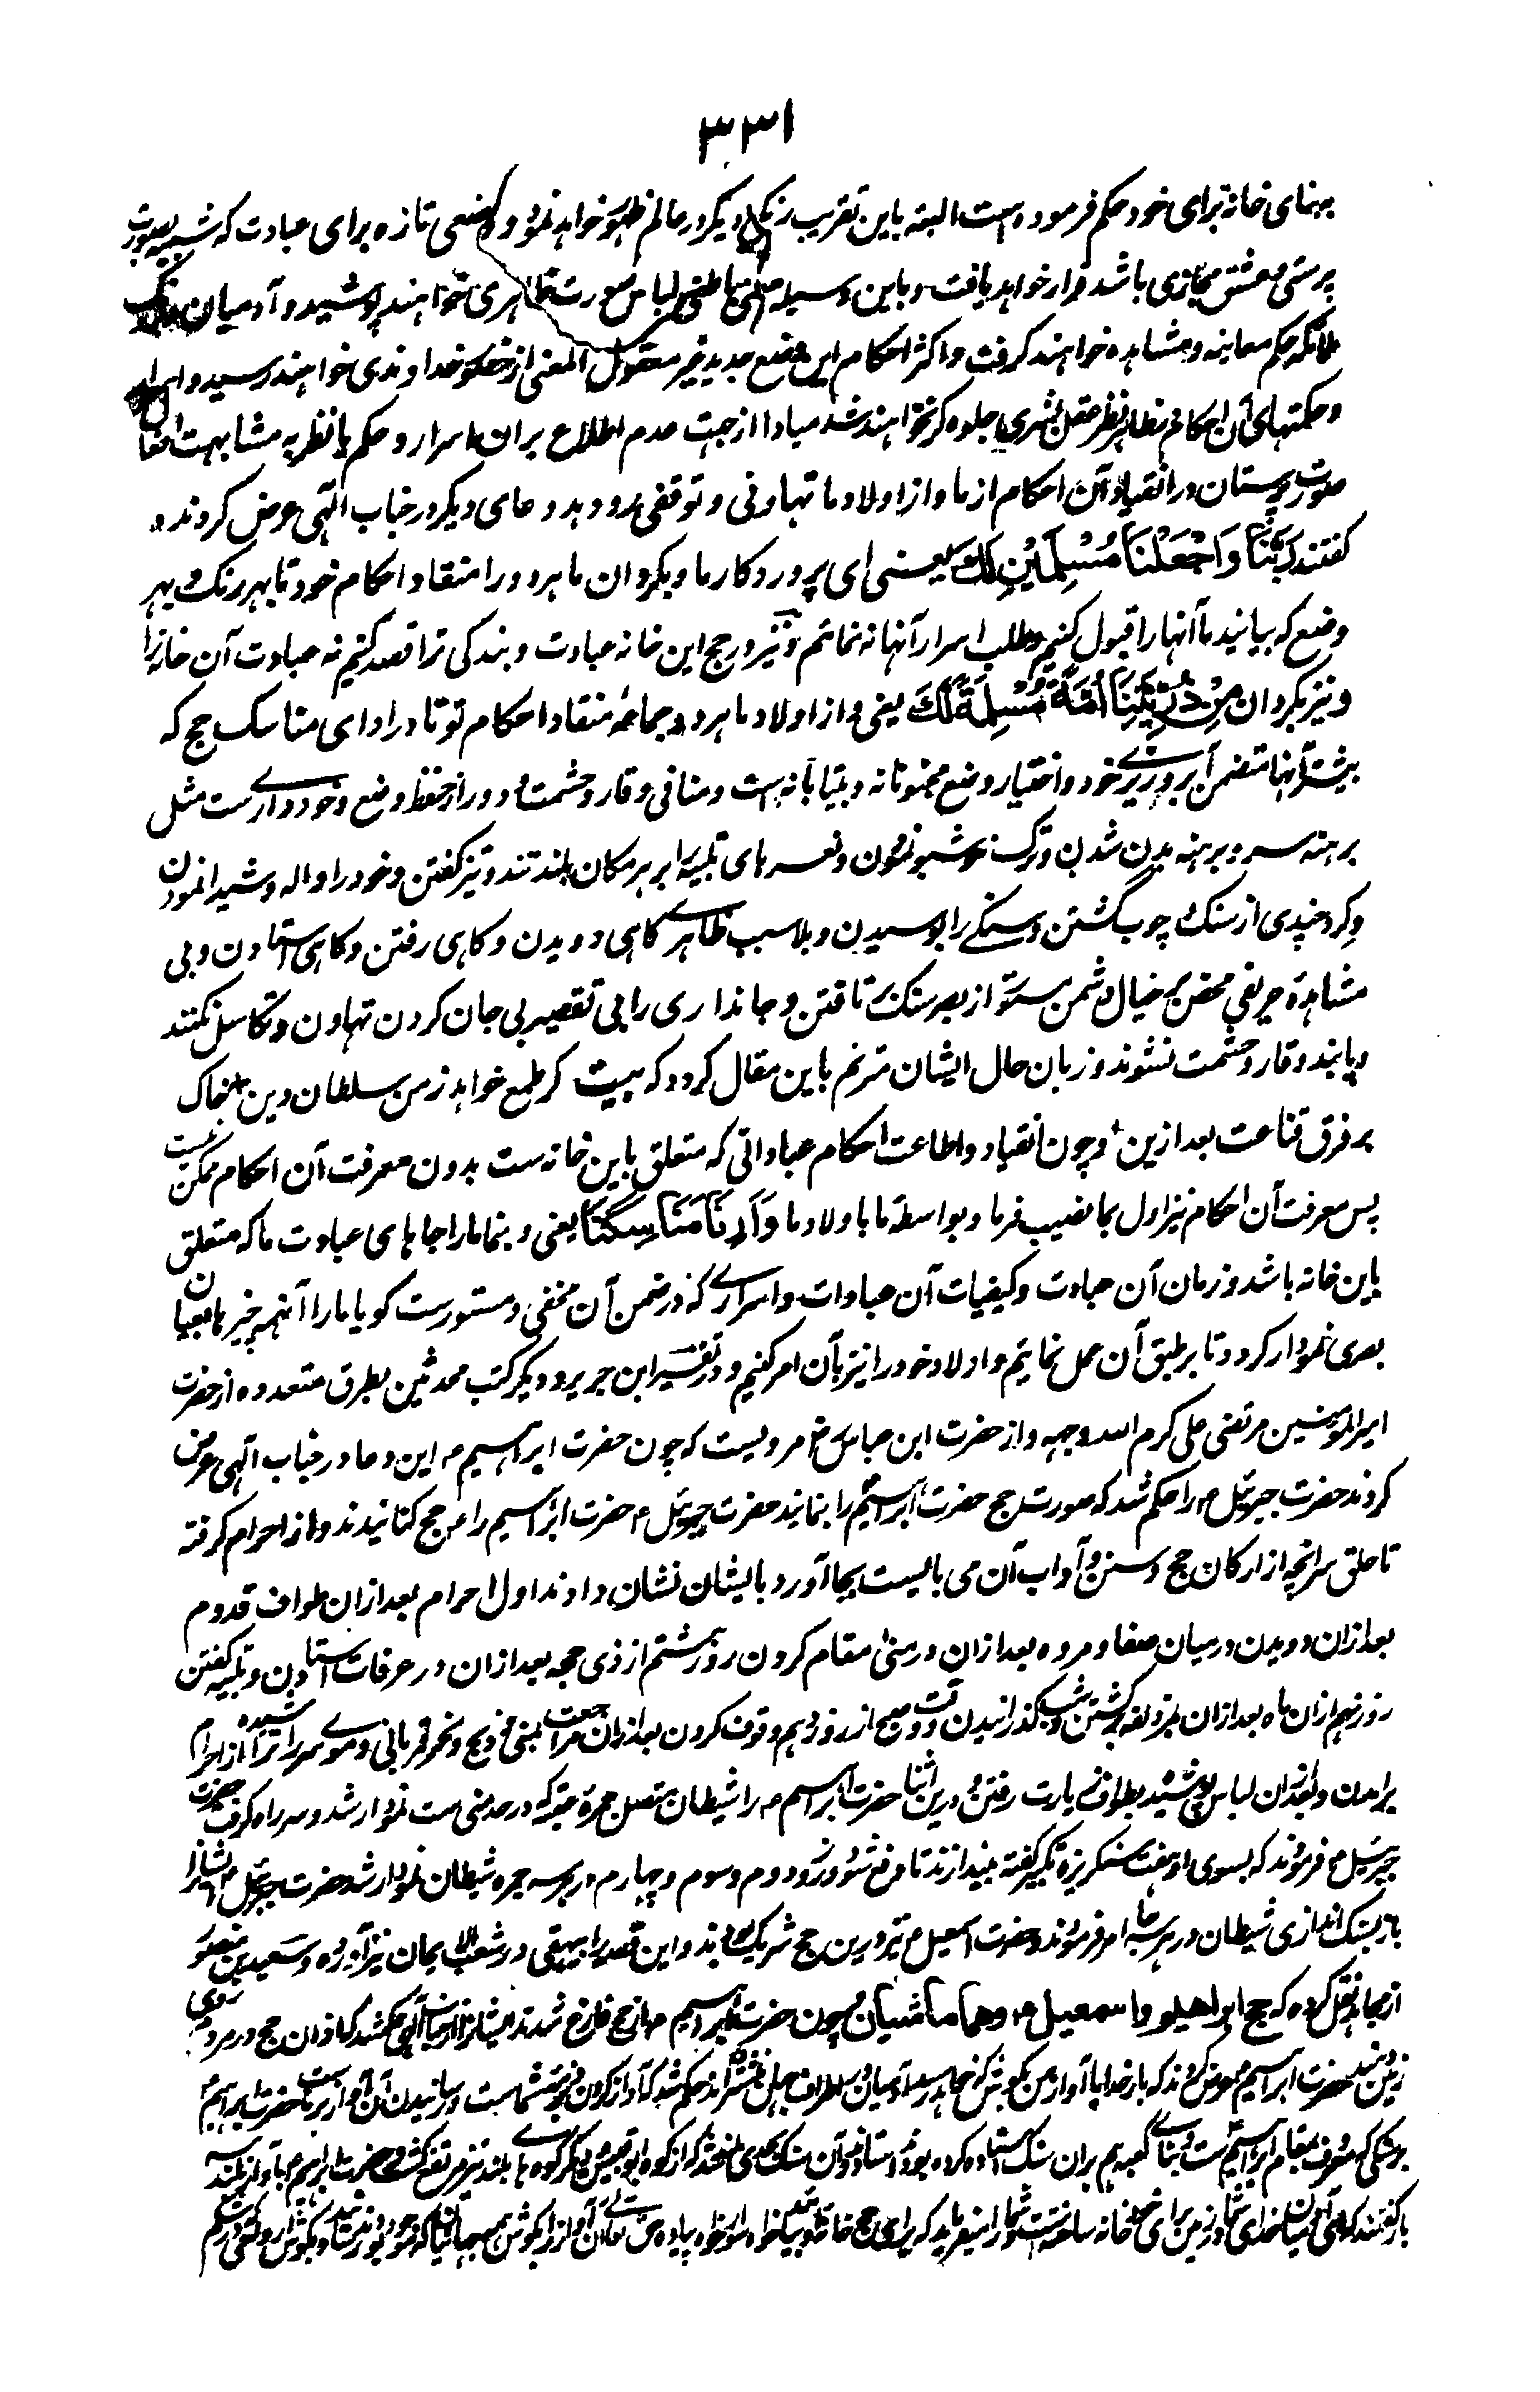 ۳۳۱
بہ بنای خانہ برای خود حکم فرمودہ است البتہ باین تقریب رنگی دیگر در عالم ظہور خواہد نمود و وضعی تازہ برای عبادت کہ شبیہ بصورت
پرستی و عشق مجازی باشد قرار خواہد یافت و باین وسیلہ معنی باطنی لباس صورت ظاہری خواہند پوشید و آدمیان
ملائکہ حکم معاینہ و مشاہدہ خواہند گرفت و اکثر احکام این وضع جدید غیر معقول المعنی از حضور خداوندی خواہند رسید و اسرار
و حکمتہای آن احکام بظاہر نظر عقل بشری جلوہ گر نخواہند شد مبادا از جہت عدم اطلاع بران اسرار و حکم یا نظر بہ مشابہت افعال
صورت پرستان در انقیاد آن احکام از ما و از اولاد ما تہاونی و توقفی رو دہد دعای دیگر در جناب الٰہی عرض کردند و
گفتند رَبَّنَا وَاجْعَلْنَا مُسْلِمَیْنِ لَكَ یعنی ای پروردگار ما و بگردان ما ہر دو را منقاد احکام خود تا بہر رنگ و بہر
وضع کہ بیایند ما آنہا را قبول کنیم و طلب اسرار آنہا نہ نمائیم و نیز در حج این خانہ عبادت و بندگی ترا قصد کنیم نہ عبادت آن خانہ را
و نیز بگردان مِنْ ذُرِّیَّتِنَا اُمَّةً مُّسْلِمَةً لَّكَ یعنی و از اولاد ما ہر دو جماعۂ منقاد احکام تو تا در ادای مناسک حج کہ
بیشتر آنہا متضمن آبروریزی خود و اختیار وضع مجنونانہ و بیتابانہ است و منافی وقار و حشمت و دور از حفظ وضع و خودداریست مثل
برہنہ سر و برہنہ بدن شدن و ترک خوشبو نمودن و نعرہای تلبیہ را بر ہر مکان بلند تند و تیز گفتن و خود را والہ و شیدا نمودن
و گرد چیزی از سنگ و چوب گشتن و سنگے را بوسیدن و بلا سبب ظاہرے گاہی دویدن و گاہی رفتن و گاہی استادن و بی
مشاہدۂ حریفی محض بر خیال دشمن مستور از بصر سنگ برتافتن و جانداری را بی تقصیر بی جان کردن تہاون و تکاسل نکنند
و پابند وقار و حشمت نشوند و زبان حال ایشان مترنم باین مقال گردد کہ بیت گر طمع خواہد ز من سلطان دین خاک
بر فرق قناعت بعد ازین و چون انقیاد و اطاعت احکام عباداتی کہ متعلق باین خانہ ست بدون معرفت آن احکام ممکن نیست
پس معرفت آن احکام نیز اول بما نصیب فرما و بواسطۂ ما باولاد ما وَاَرِنَا مَنَاسِکَنَا یعنی و بنما ما را جاہای عبادت ما کہ متعلق
باین خانہ باشد و زمان آن عبادت و کیفیات آن عبادات و اسراری کہ در ضمن آن مخفی و مستورست گویا ما را آنہمہ چیزہا بعیان
بصری نمودار گردد تا بر طبق آن عمل نمائیم و اولاد خود را نیز بآن امر کنیم و در تفسیر ابن جریر و دیگر کتب محدثین بطرق متعددہ از حضرت
امیر المومنین مرتضی علی کرم اللہ وجہہ و از حضرت ابن عباس رض مرویست کہ چون حضرت ابراہیم ع این دعا در جناب الٰہی عرض
کردند حضرت جبرئیل ع را حکم شد کہ صورت حج حضرت ابراہیم را بنمایند حضرت جبرئیل ع حضرت ابراہیم را ع حج کنانیدند و از احرام گرفتہ
تا حلق سر آنچہ از ارکان حج و سنن و آداب آن می بایست بجا آورد بایشان نشان دادند اول احرام بعد ازان طواف قدوم
بعد ازان دویدن درمیان صفا و مروہ بعد ازان در منی مقام کردن روز ہشتم از ذی حجہ بعد ازان در عرفات استادن و تلبیہ گفتن
روز نہم ازان ماہ بعد ازان بمزدلفہ برگشتن و شب گذرانیدن و وقت صبح از روز دہم وقوف کردن بعد ازان مراجعت بمنی و ذبح و نحر قربانی و موے سر را تراشیدہ از احرام
برآمدن و بعد ازان لباس پوشیدہ بطواف زیارت رفتن و درین اثنا حضرت ابراہیم ع را شیطان متصل جمرۂ عقبہ کہ در حد منی ست نمودار شد و سر راہ گرفت حضرت
جبرئیل ع فرمودند کہ بسوی او ہفت سنگریزہ تکبیر گفتہ بیندازند تا دفع شود و روز دوم و سوم و چہارم در ہر سہ جمرہ شیطان نمودار شد حضرت جبرئیل ع ایشانرا
باز بسنگ اندازی شیطان در ہر سہ جا امر فرمودند و حضرت اسمعیل ع نیز درین حج شریک بودند و این قصہ را بیہقی در شعب الایمان نیز آوردہ و سعید بن منصور
از مجاہد نقل کردہ کہ حج ابراھیم و اسمعیل ع و ھما ماشیان و چون حضرت ابراہیم ع از حج فارغ شدند ایشانرا از جناب الٰہی حکم شد کہ اذان حج در مردم روی
زمین دہند حضرت ابراہیم ع عرض کردند کہ بار خدایا آواز من بگوش کہ خواہد رسید آدمیان در اطراف جہان منتشر اند حکم شد کہ آواز کردن بر ذمہ شماست و رسانیدن آن آواز بر ماست حضرت ابراہیم ع
بر سنگی کہ معروف بمقام ابراہیم ست و بنای کعبہ ہم بران سنگ استادہ کردہ بودند استادند و آن سنگ بحدی بلند شد کہ از کوہ ابوقبیس و دیگر کوہ ہای بلند نیز مرتفع گشت و حضرت ابراہیم ع بآواز بلند سہ
بار گفتند کہ ای آدمیان خدای شما در زمین برای خود خانہ ساختہ است و شما را میفرماید کہ برای حج خانۂ او بیائید خواہ سوار خواہ پیادہ حق تعالیٰ آن آواز را بگوش جمیع جہانیان کہ موجود بودند رسانید و بگوش